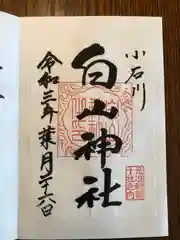 小石川
白山神社
令和三年葉月二十六日